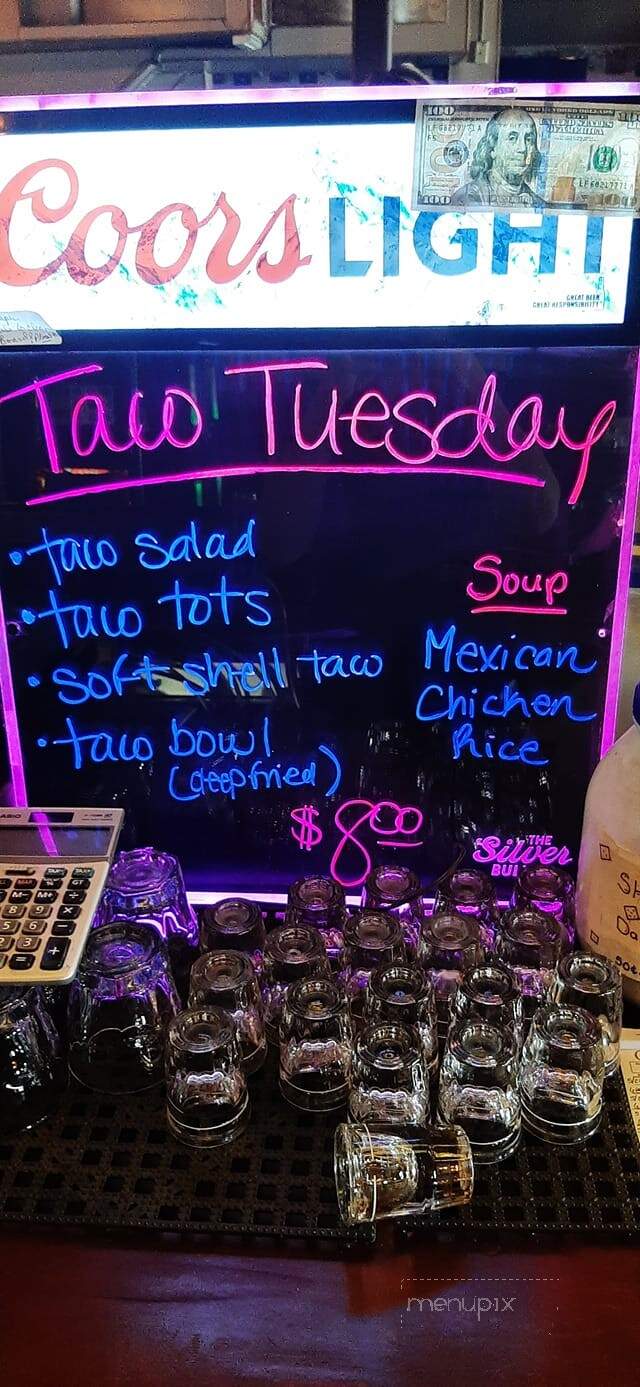 100
Coors LIGHT
GREAT BEER
GREAT RESPONSIBILITY
Taco Tuesday
• taco salad
• taco tots
• soft shell taco
• taco bowl
(deep fried)
Soup
Mexican
Chicken
Rice
$8.00
THE
Silver
BUL
CASIO
menupix